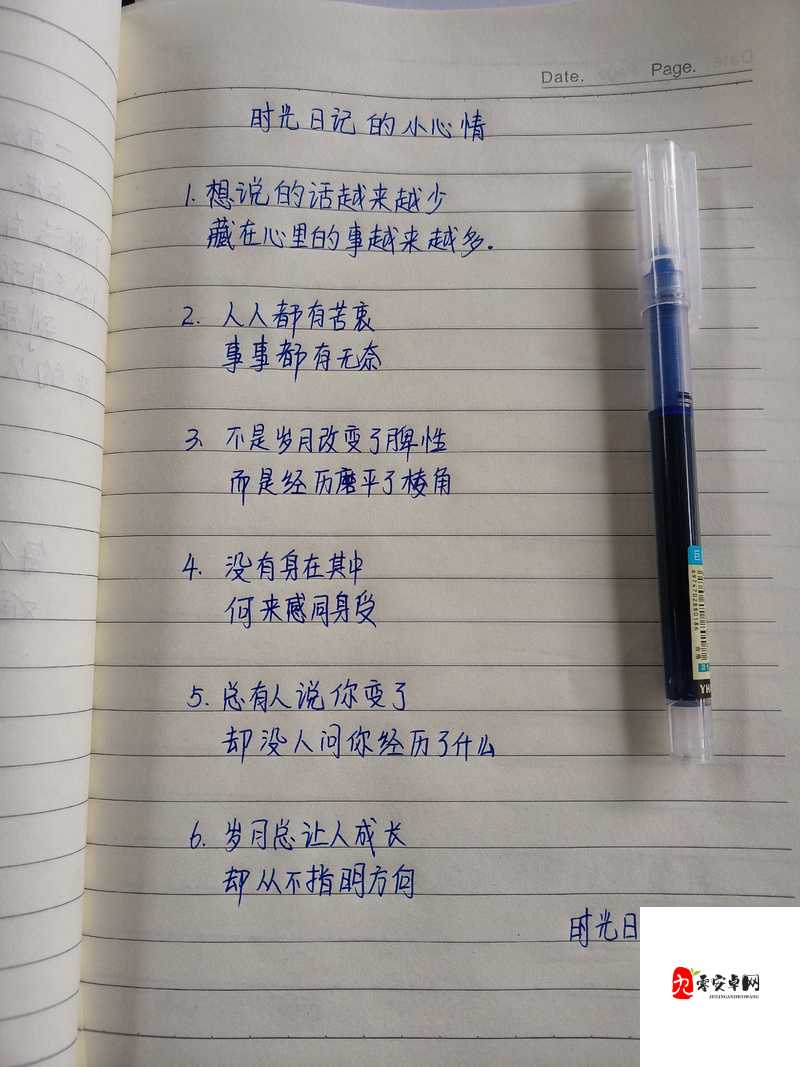 Date.
Page.
时光日记的小心情
1. 想说的话越来越少
藏在心里的事越来越多.
2. 人人都有苦衷
事事都有无奈
3、不是岁月改变了脾性
而是经历磨平了棱角
4. 没有身在其中
何来感同身受
5. 总有人说你变了
却没人问你经历了什么
6. 岁月总让人成长
却从不指明方向
时光日
零安卓网
YH